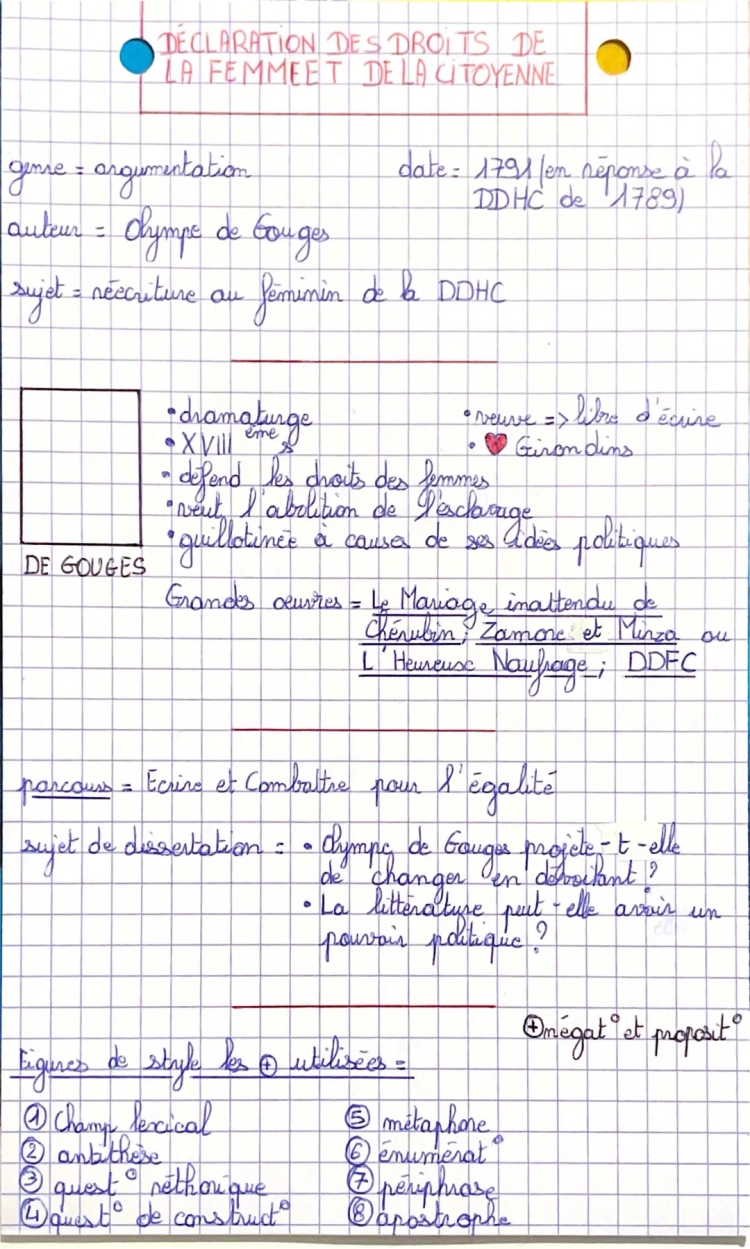 DÉCLARATION DES DROITS DE
LA FEMME ET DE LA CITOYENNE
genre = argumentation
date = 1791 (en réponse à la
DDHC de 1789)
auteur = Olympe de Gouges
sujet = réécriture au féminin de la DDHC
• dramaturge
• veuve => libre d'écrire
• XVIII ème s
• ♥ Girondins
• défend les droits des femmes
• veut l'abolition de l'esclavage
• guillotinée à causes de ses idées politiques
DE GOUGES
Grandes oeuvres = Le Mariage inattendu de
Chérubin ; Zamore et Mirza ou
L'Heureuse Naufrage ; DDFC
parcours = Ecrire et Combattre pour l'égalité
sujet de dissertation = • Olympe de Gouges projète-t-elle
de changer en dévoilant ?
• La littérature peut-elle avoir un
pouvoir politique ?
⊕ négat° et proposit°
Figures de style les ⊕ utilisées =
① Champ lexical
⑤ métaphore
② antithèse
⑥ énumérat°
③ quest° réthorique
⑦ périphrase
④ quest° de construct°
⑧ apostrophe